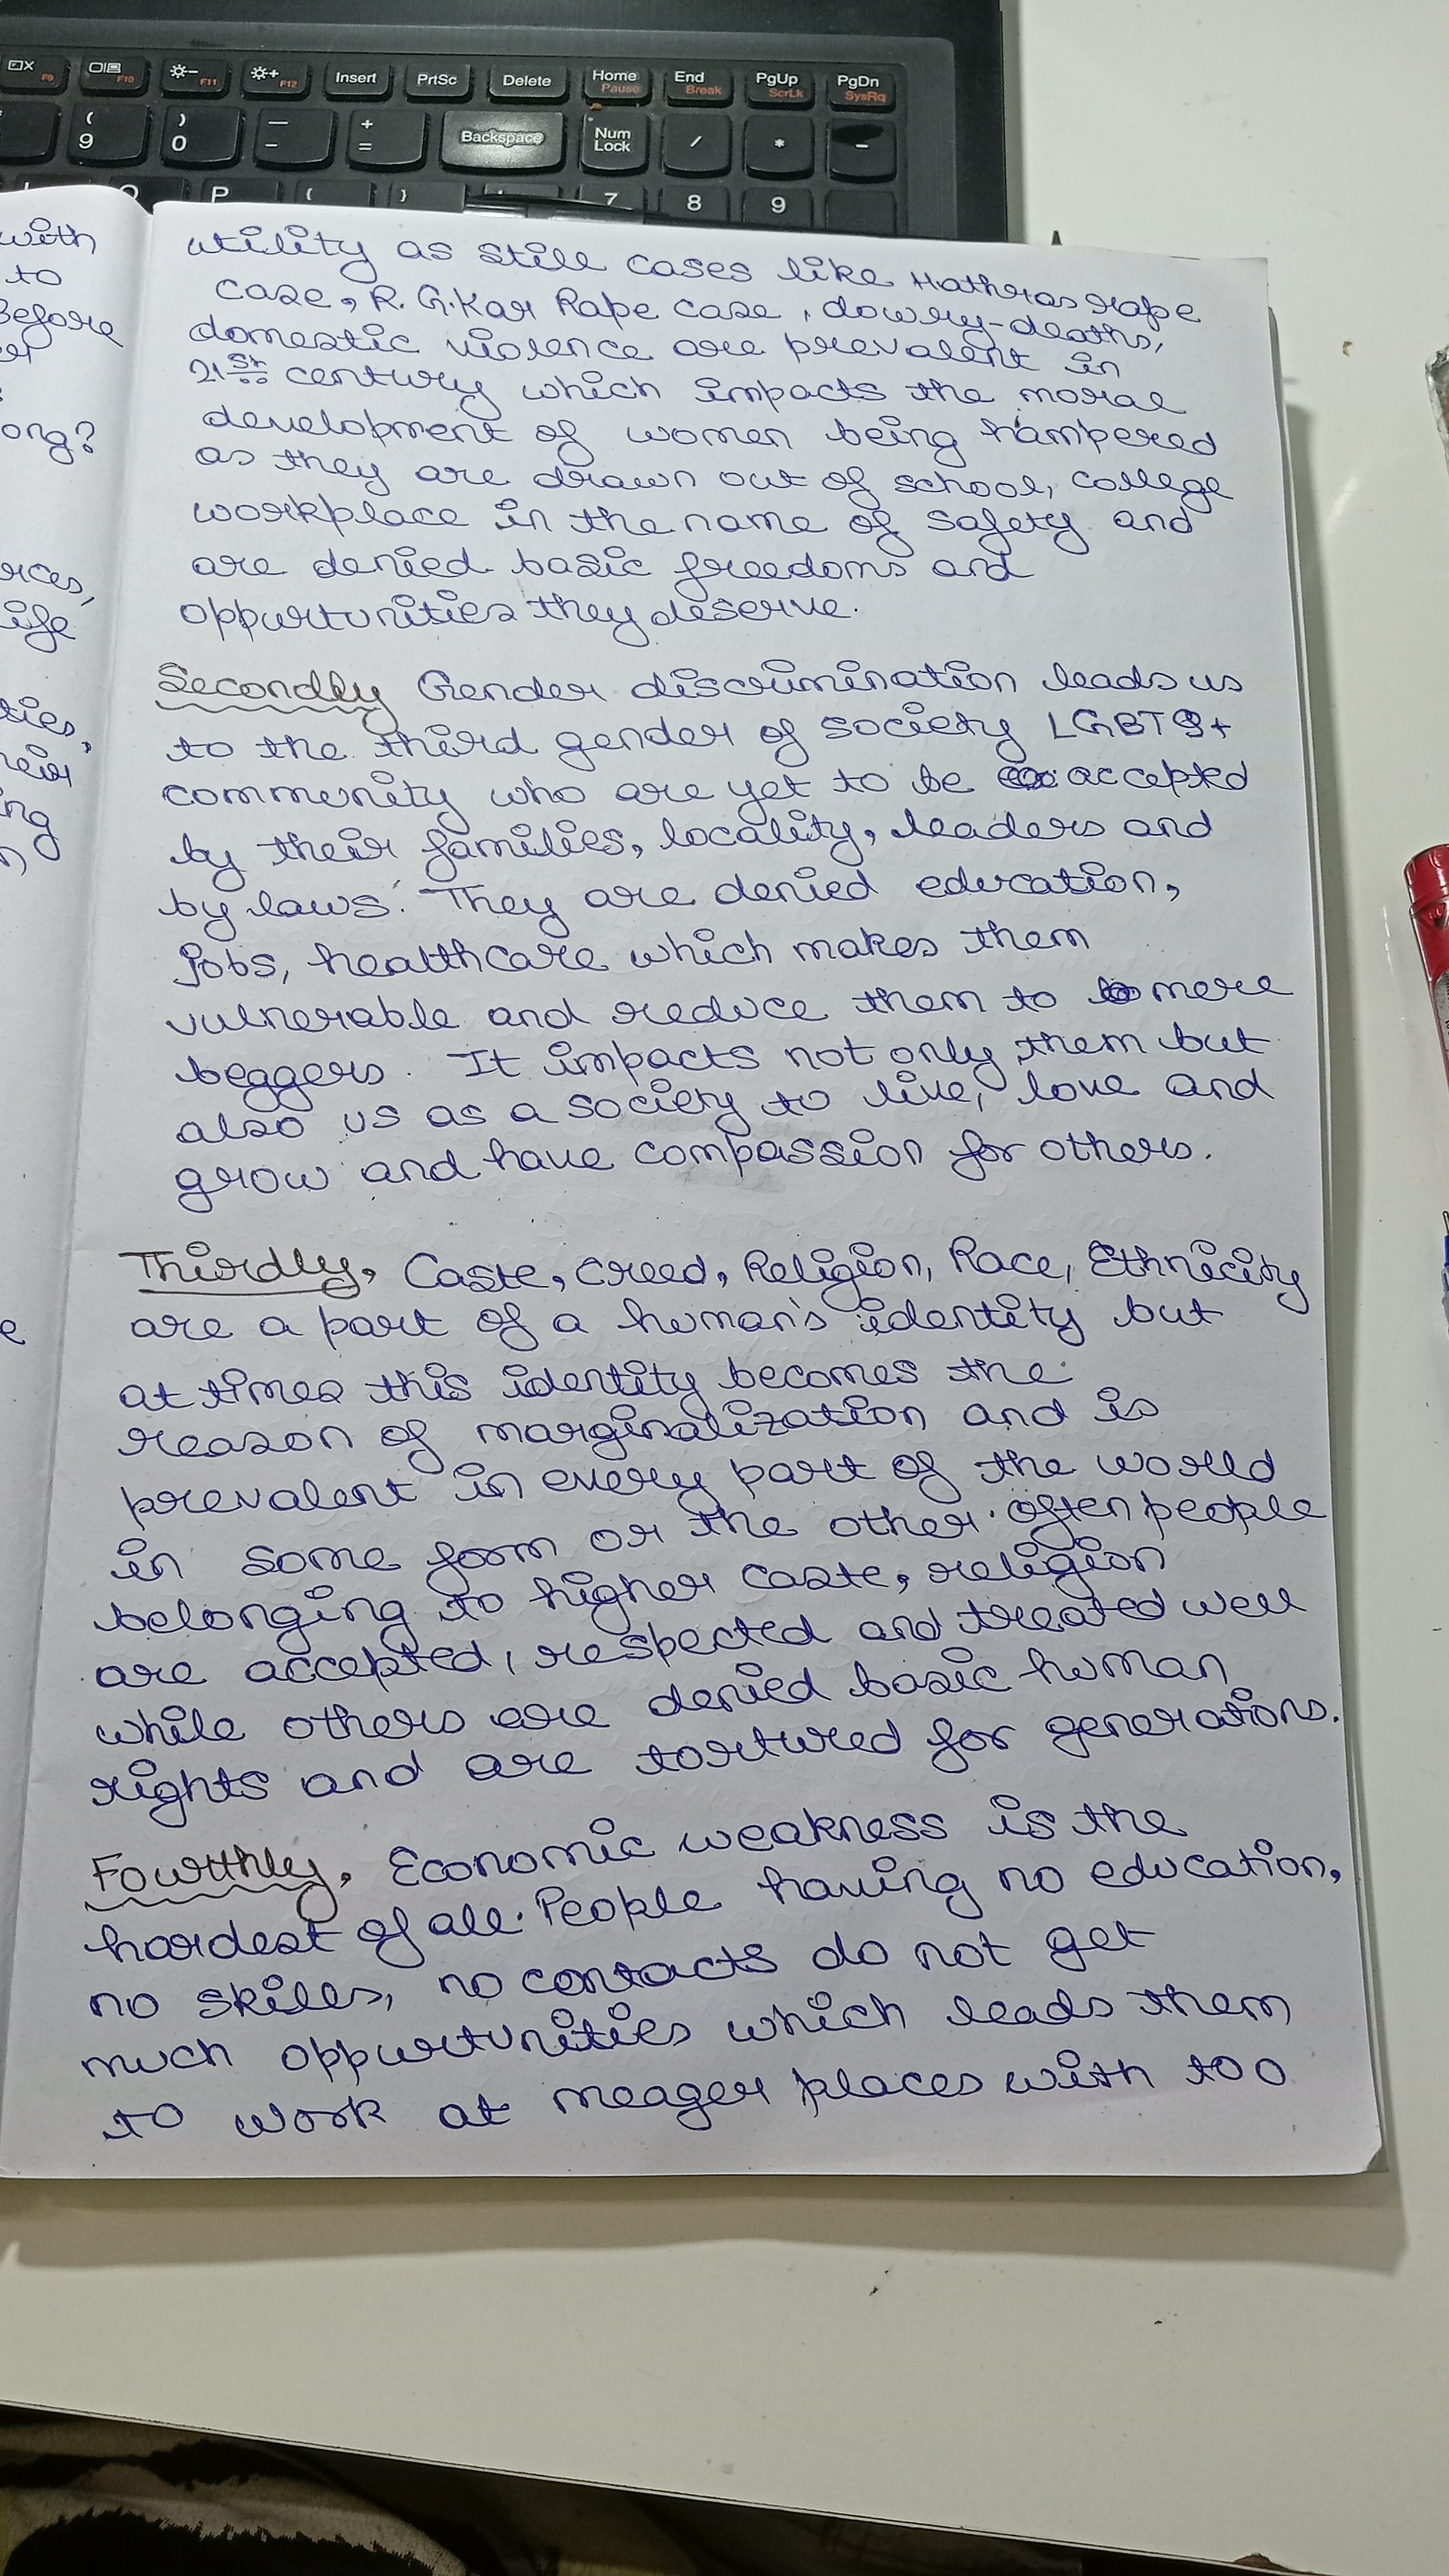 F9
F10
F11
F12
Insert
PrtSc
Delete
Home
Pause
End
Break
PgUp
ScrLk
PgDn
SysRq
( 9
) 0
— -
+ =
Backspace
Num Lock
/
*
-
O
P
{
}
7
8
9
with
to
Before
ong?
ife
ing
utility as still cases like Hathras rape
case, R.G.Kar Rape case, dowry-deaths,
domestic violence are prevalent in
21st century which impacts the moral
development of women being hampered
as they are drawn out of school, college
workplace in the name of safety and
are denied basic freedoms and
oppurtunities they deserve.
Secondly Gender discrimination leads us
to the third gender of society LGBTQ+
community who are yet to be accepted
by their families, locality, leaders and
by laws. They are denied education,
jobs, healthcare which makes them
vulnerable and reduce them to mere
beggers. It impacts not only them but
also us as a society to live, love and
grow and have compassion for others.
Thirdly, Caste, creed, Religion, Race, Ethnicity
are a part of a human's identity but
at times this identity becomes the
reason of marginalization and is
prevalent in every part of the world
in some form or the other. often people
belonging to higher caste, religion
are accepted, respected and treated well
while others are denied basic human
rights and are tortured for generations.
Fourthly, Economic weakness is the
hardest of all. People having no education,
no skills, no contacts do not get
much oppurtunities which leads them
to work at meager places with too